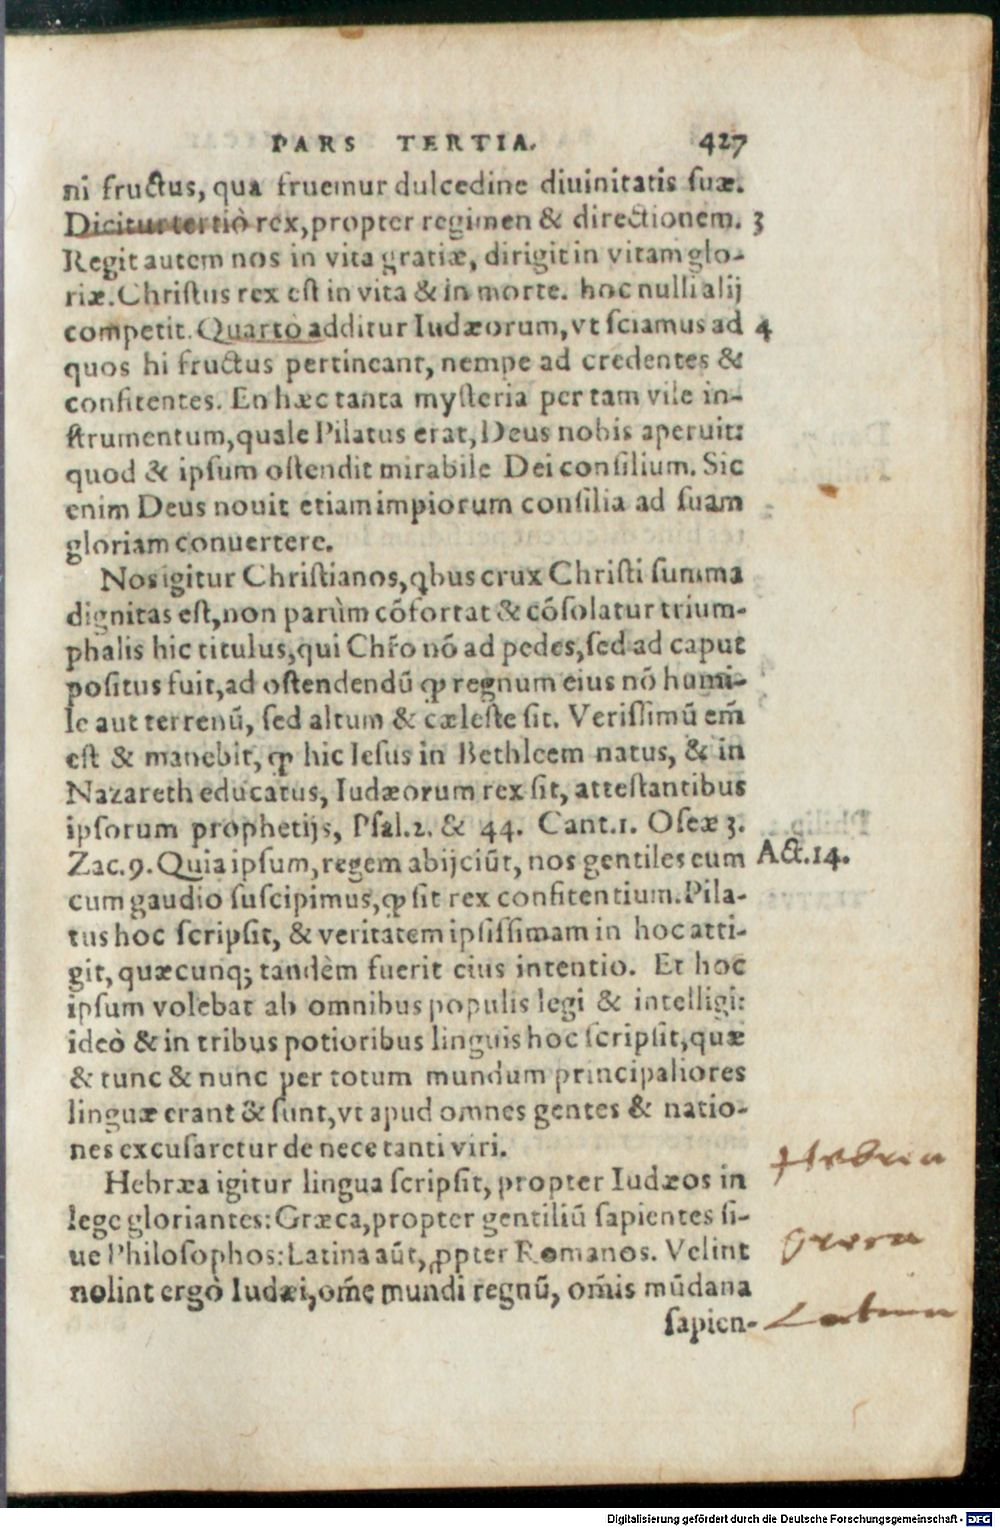 PARS TERTIA. 427
ni fructus, qua fruemur dulcedine diuinitatis suæ.
Dicitur tertiò rex, propter regimen & directionem. 3
Regit autem nos in vita gratiæ, dirigit in vitam glo-
riæ. Christus rex est in vita & in morte. hoc nulli alij
competit. Quarto additur Iudæorum, vt sciamus ad 4
quos hi fructus pertineant, nempe ad credentes &
confitentes. En hæc tanta mysteria per tam vile in-
strumentum, quale Pilatus erat, Deus nobis aperuit:
quod & ipsum ostendit mirabile Dei consilium. Sic
enim Deus nouit etiam impiorum consilia ad suam
gloriam conuertere.
Nos igitur Christianos, qbus crux Christi summa
dignitas est, non parùm cõfortat & cõsolatur trium-
phalis hic titulus, qui Chr̃o nõ ad pedes, sed ad caput
positus fuit, ad ostendendũ ꝙ regnum eius nõ humi-
le aut terrenũ, sed altum & cæleste sit. Verissimũ em̃
est & manebit, ꝙ hic Iesus in Bethleem natus, & in
Nazareth educatus, Iudæorum rex sit, attestantibus
ipsorum prophetijs, Psal. 2. & 44. Cant. 1. Oseæ 3.
Zac. 9. Quia ipsum, regem abijciũt, nos gentiles eum Act. 14.
cum gaudio suscipimus, ꝙ sit rex confitentium. Pila-
tus hoc scripsit, & veritatem ipsissimam in hoc atti-
git, quæcunq; tandèm fuerit eius intentio. Et hoc
ipsum volebat ab omnibus populis legi & intelligi:
ideò & in tribus potioribus linguis hoc scripsit, quæ
& tunc & nunc per totum mundum principaliores
linguæ erant & sunt, vt apud omnes gentes & natio-
nes excusaretur de nece tanti viri.
Hebræa igitur lingua scripsit, propter Iudæos in
lege gloriantes: Græca, propter gentiliũ sapientes si-
ue Philosophos: Latina aũt, ꝓpter Romanos. Velint
nolint ergò Iudæi, om̃e mundi regnũ, om̃is mũdana
sapien-
Latina
Digitalisierung gefördert durch die Deutsche Forschungsgemeinschaft - DFG